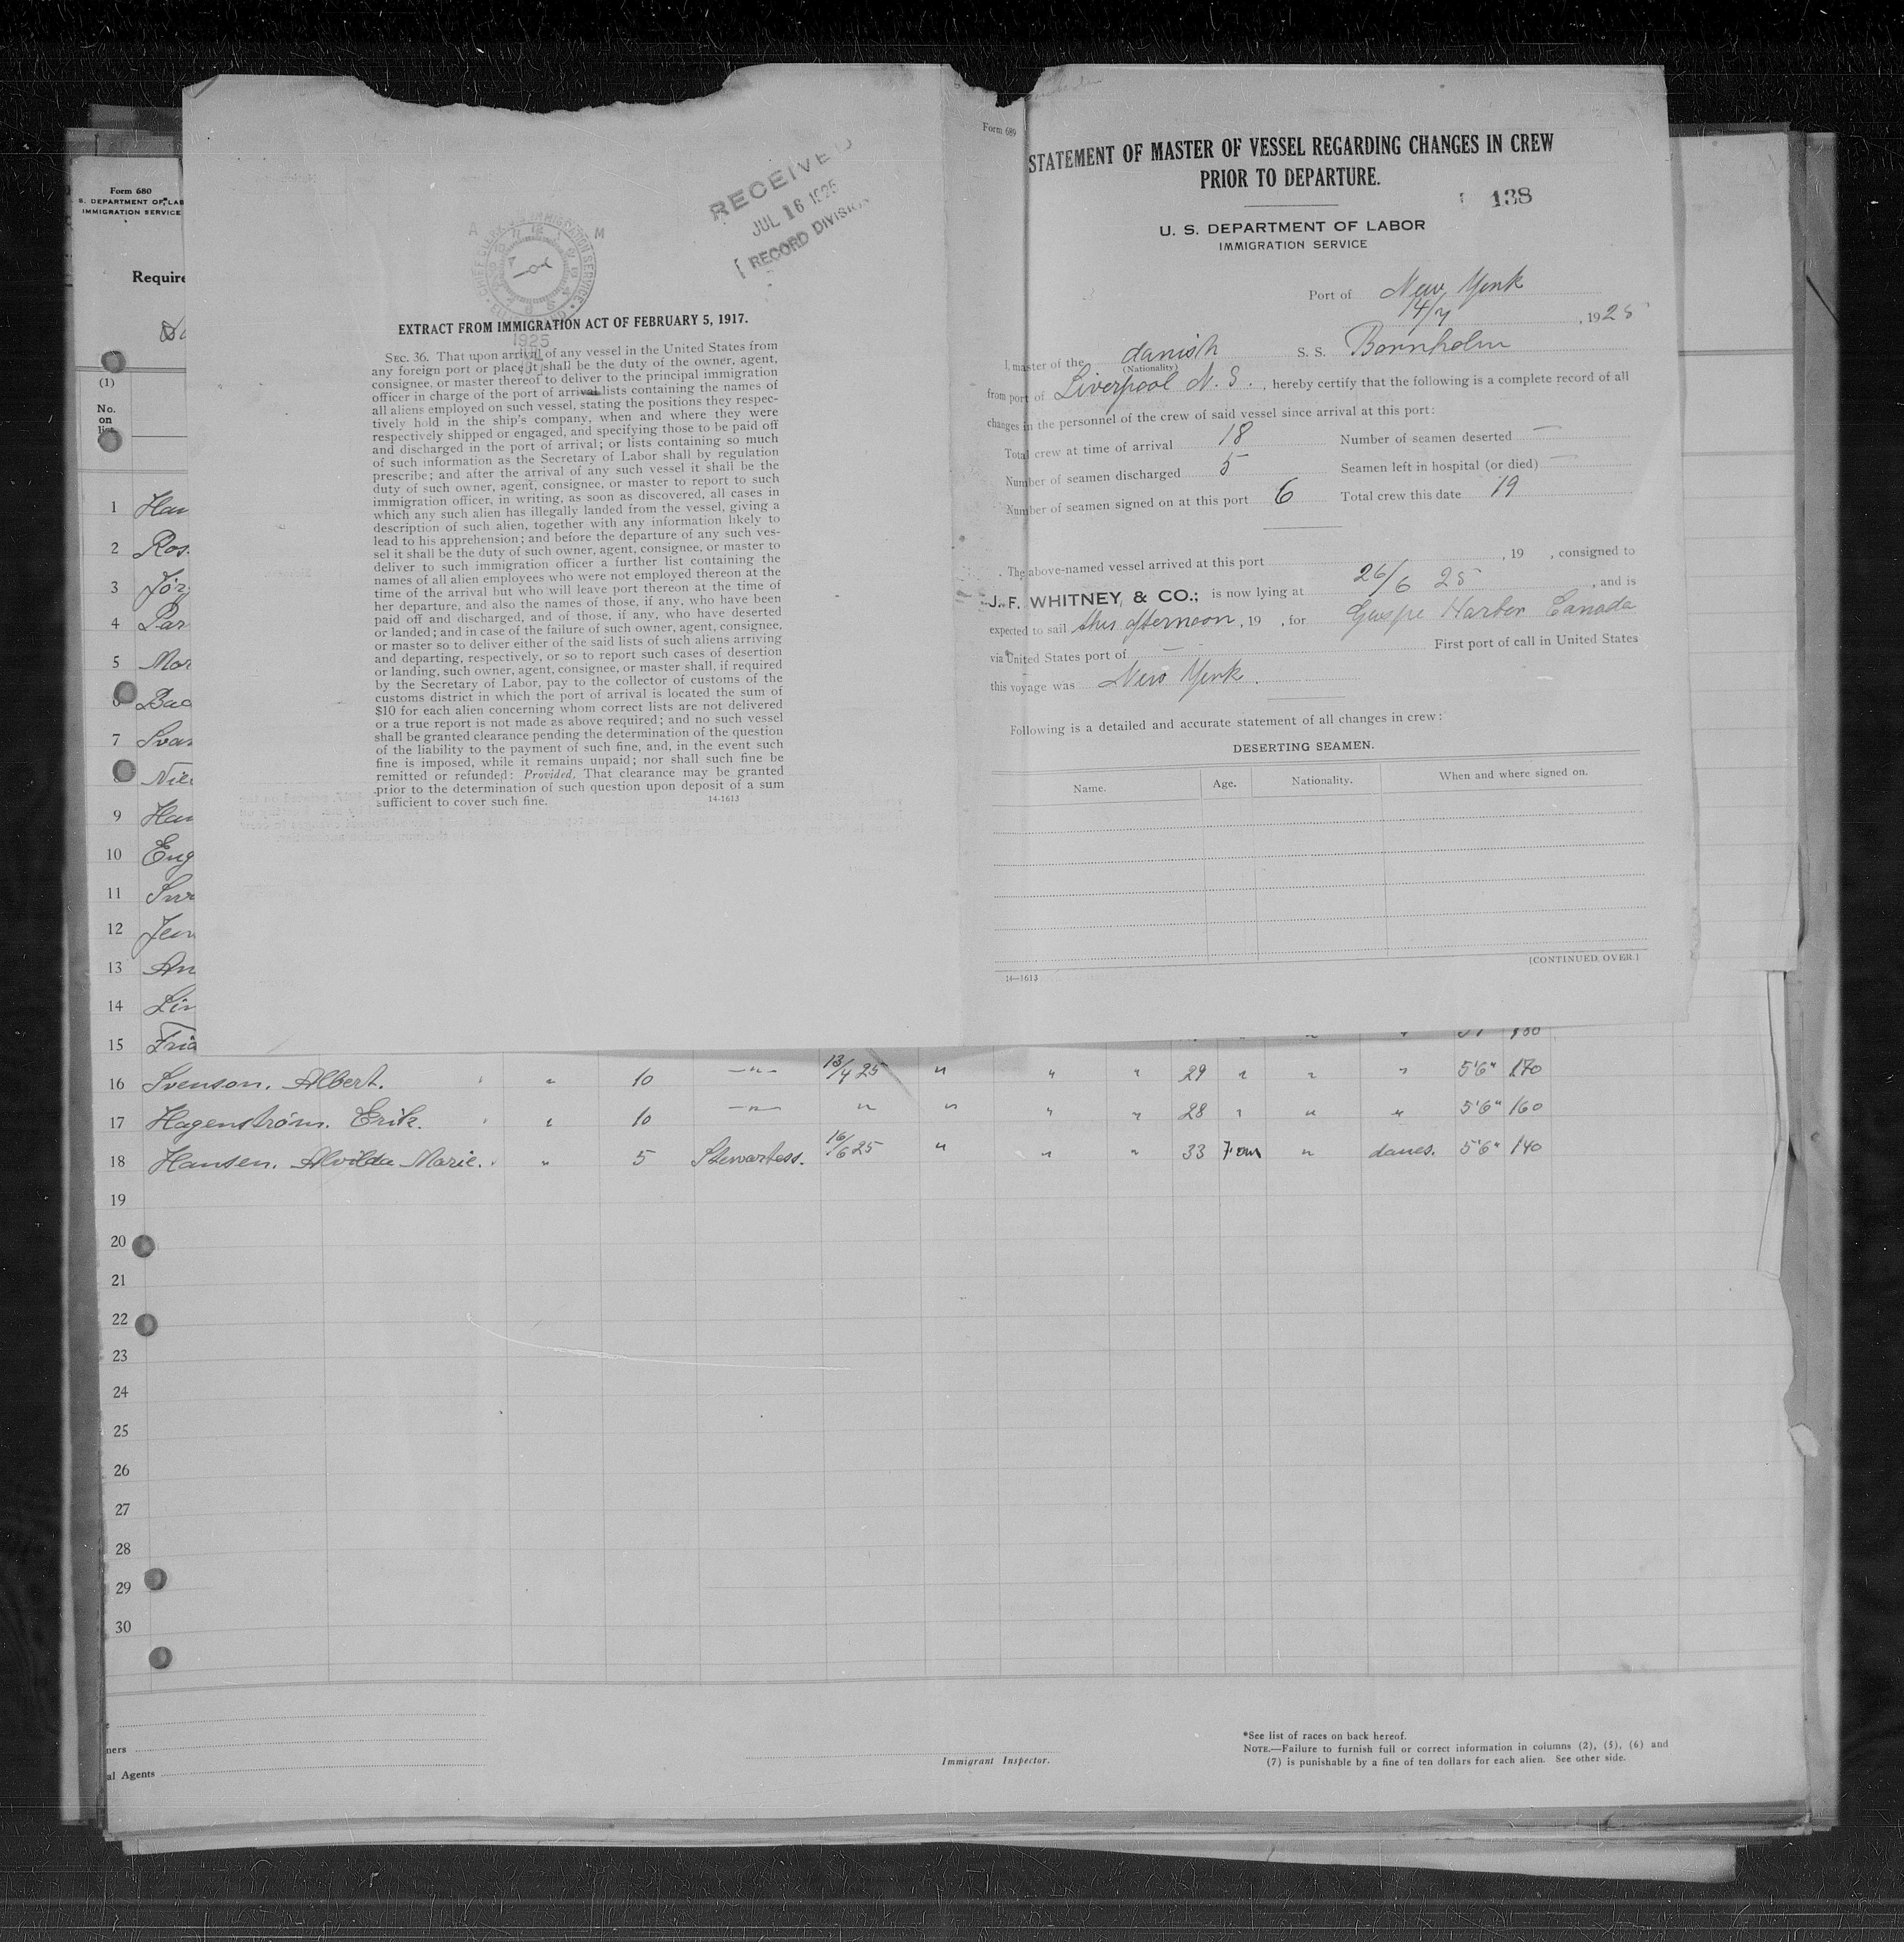 Form 680
S. DEPARTMENT OF LAB
IMMIGRATION SERVICE
Require
(1)
No.
on
list
RECEIVED
JUL 16 1925
RECORD DIVISION
A M
1925
EXTRACT FROM IMMIGRATION ACT OF FEBRUARY 5, 1917.
SEC. 36. That upon arrival of any vessel in the United States from
any foreign port or place it shall be the duty of the owner, agent,
consignee, or master thereof to deliver to the principal immigration
officer in charge of the port of arrival lists containing the names of
all aliens employed on such vessel, stating the positions they respec-
tively hold in the ship's company, when and where they were
respectively shipped or engaged, and specifying those to be paid off
and discharged in the port of arrival; or lists containing so much
of such information as the Secretary of Labor shall by regulation
prescribe; and after the arrival of any such vessel it shall be the
duty of such owner, agent, consignee, or master to report to such
immigration officer, in writing, as soon as discovered, all cases in
which any such alien has illegally landed from the vessel, giving a
description of such alien, together with any information likely to
lead to his apprehension; and before the departure of any such ves-
sel it shall be the duty of such owner, agent, consignee, or master to
deliver to such immigration officer a further list containing the
names of all alien employees who were not employed thereon at the
time of the arrival but who will leave port thereon at the time of
her departure, and also the names of those, if any, who have been
paid off and discharged, and of those, if any, who have deserted
or landed; and in case of the failure of such owner, agent, consignee,
or master so to deliver either of the said lists of such aliens arriving
and departing, respectively, or so to report such cases of desertion
or landing, such owner, agent, consignee, or master shall, if required
by the Secretary of Labor, pay to the collector of customs of the
customs district in which the port of arrival is located the sum of
$10 for each alien concerning whom correct lists are not delivered
or a true report is not made as above required; and no such vessel
shall be granted clearance pending the determination of the question
of the liability to the payment of such fine, and, in the event such
fine is imposed, while it remains unpaid; nor shall such fine be
remitted or refunded: Provided, That clearance may be granted
prior to the determination of such question upon deposit of a sum
sufficient to cover such fine. 14-1613
Form 689
STATEMENT OF MASTER OF VESSEL REGARDING CHANGES IN CREW
PRIOR TO DEPARTURE.
138
U. S. DEPARTMENT OF LABOR
IMMIGRATION SERVICE
Port of New York
14/7, 1925
I, master of the danish S. S. Bornholm
(Nationality)
from port of Liverpool N. S., hereby certify that the following is a complete record of all
changes in the personnel of the crew of said vessel since arrival at this port:
Total crew at time of arrival 18 Number of seamen deserted —
Number of seamen discharged 5 Seamen left in hospital (or died) —
Number of seamen signed on at this port 6 Total crew this date 19
The above-named vessel arrived at this port , 19 , consigned to
26/6 25
J. F. WHITNEY & CO.; is now lying at , and is
expected to sail this afternoon, 19 , for Gaspe Harbor Canada
via United States port of — First port of call in United States
this voyage was New York.
Following is a detailed and accurate statement of all changes in crew:
DESERTING SEAMEN.
Name. Age. Nationality. When and where signed on.
14—1613
[CONTINUED OVER]
1 Han
2 Ros
3 Jör
4 Par
5 Mor
6 Bac
7 Svan
8 Niel
9 Han
10 Eng
11 Sve
12 Jen
13 An
14 Lin
15 Frid
16 Svenson. Albert. " 10 —"— 13/4 25 " " " 29 " " " 5'6" 170
17 Hagenström. Erik. " 10 —"— " " " " 28 " " " 5'6" 160
18 Hansen. Alvilda Marie. " 5 Stewartess. 16/6 25 " " " 33 Fem " danes. 5'6" 140
19
20
21
22
23
24
25
26
27
28
29
30
ners
al Agents
Immigrant Inspector.
*See list of races on back hereof.
NOTE.—Failure to furnish full or correct information in columns (2), (5), (6) and
(7) is punishable by a fine of ten dollars for each alien. See other side.